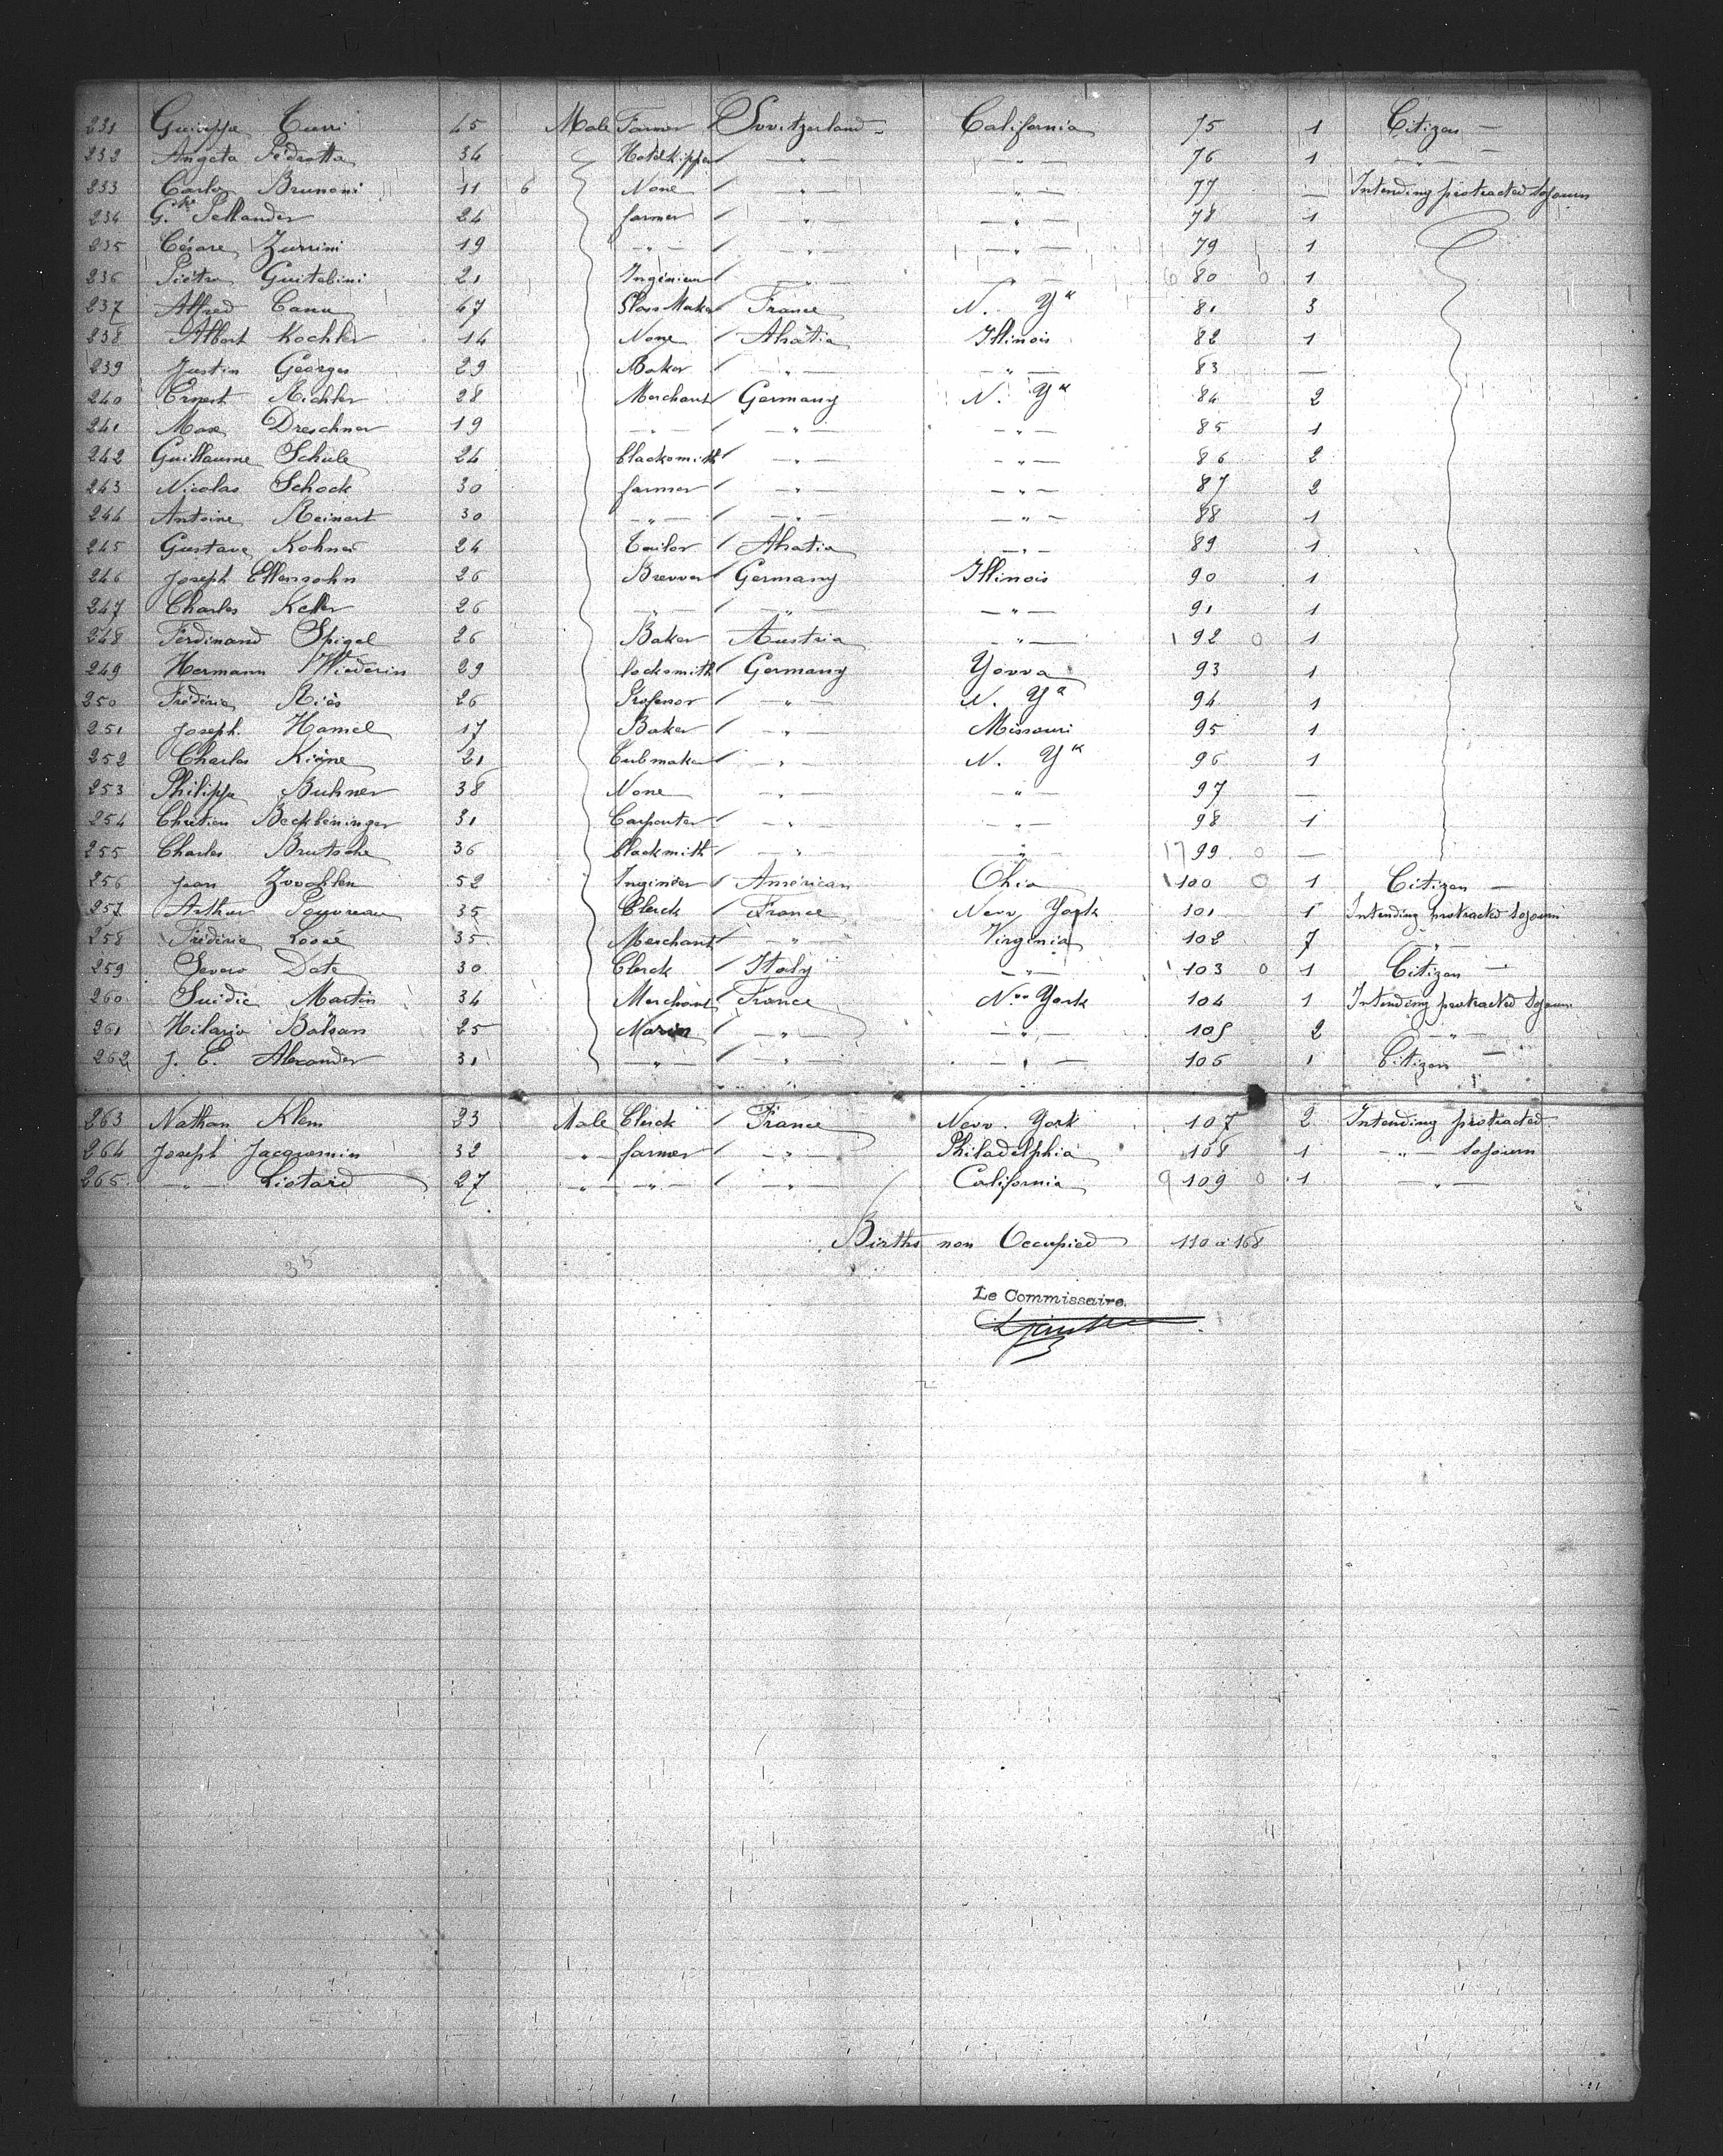 231 Guiseppe Turri 45 Male Farmer Svvitzerland 〃 California 75 1 Citizen —
232 Angeta Pedrotta 34 Hotelkipper — 〃 — — 〃 — 76 1 — 〃 —
233 Carlo Brunoni 11 6 None — 〃 — — 〃 — 77 — Intending protracted Sojourn
234 G.te Pellander 24 farmer — 〃 — — 〃 — 78 1
235 Césare Zurrini 19 — 〃 — — 〃 — — 〃 — 79 1
236 Piétro Guitabini 21 Ingénieur — 〃 — — 〃 — 80 0 1
237 Alfred Canu 47 Glass Maker France N. Yk 81 3
238 Albert Kochler 14 None Alsatia Illinois 82 1
239 Justin Georges 29 Baker — 〃 — — 〃 — 83 —
240 Ernest Richler 28 Merchant Germany N. Yk 84 2
241 Max Dreschner 19 — 〃 — — 〃 — — 〃 — 85 1
242 Guillaume Schule 24 blacksmith — 〃 — — 〃 — 86 2
243 Nicolas Schock 30 farmer — 〃 — — 〃 — 87 2
244 Antoine Reinert 30 — 〃 — — 〃 — — 〃 — 88 1
245 Gustave Kohner 24 Tailor Alsatia — 〃 — 89 1
246 Joseph Ellensohn 26 Brevver Germany Illinois 90 1
247 Charles Keller 26 — 〃 — — 〃 — — 〃 — 91 1
248 Ferdinand Spigel 26 Baker Austria — 〃 — 92 0 1
249 Hermann Wiederin 29 locksmith Germany Yovva 93 1
250 Frédéric Riès 26 Professor — 〃 — N. Yk 94 1
251 Joseph. Hamel 17 Baker — 〃 — Missouri 95 1
252 Charles Kiéne 21 Tubmaker — 〃 — N. Yk 96 1
253 Philippe Buhner 38 None — 〃 — — 〃 — 97 —
254 Chrétien Beckbeninger 31 Carpenter — 〃 — — 〃 — 98 1
255 Charles Brutsche 36 blacksmith — 〃 — — 〃 — 99 0 —
256 Jean Zvvahlen 52 Inginéer Américan Ohio 100 0 1 Citizen —
257 Arthur Pouvreau 35 Clerck France Nevv York 101 1 Intending protracted Sojourn
258 Frédéric 35 Merchant — 〃 — Virginia 102 7 — 〃 —
259 Severo Date 30 Clerck Italy — 〃 — 103 0 1 Citizen —
260 Martin 34 Merchant France Nevv York 104 1 Intending protracted Sojourn
261 Hilario Balsan 25 — 〃 — — 〃 — 105 2 — 〃 —
262 J. E. Alexander 31 — 〃 — — 〃 — — 〃 — 106 1 Citizen —
263 Nathan Klein 23 Male Clerck France Nevv. York 107 2 Intending protracted
264 Joseph Jacquemin 32 — 〃 — farmer — 〃 — Philadelphia 108 1 — 〃 — Sojourn
265 — 〃 — Liotard 27 — 〃 — — 〃 — — 〃 — California 109 0 1 — 〃 —
Births non Occupied 110 à 168
35
Le Commissaire.